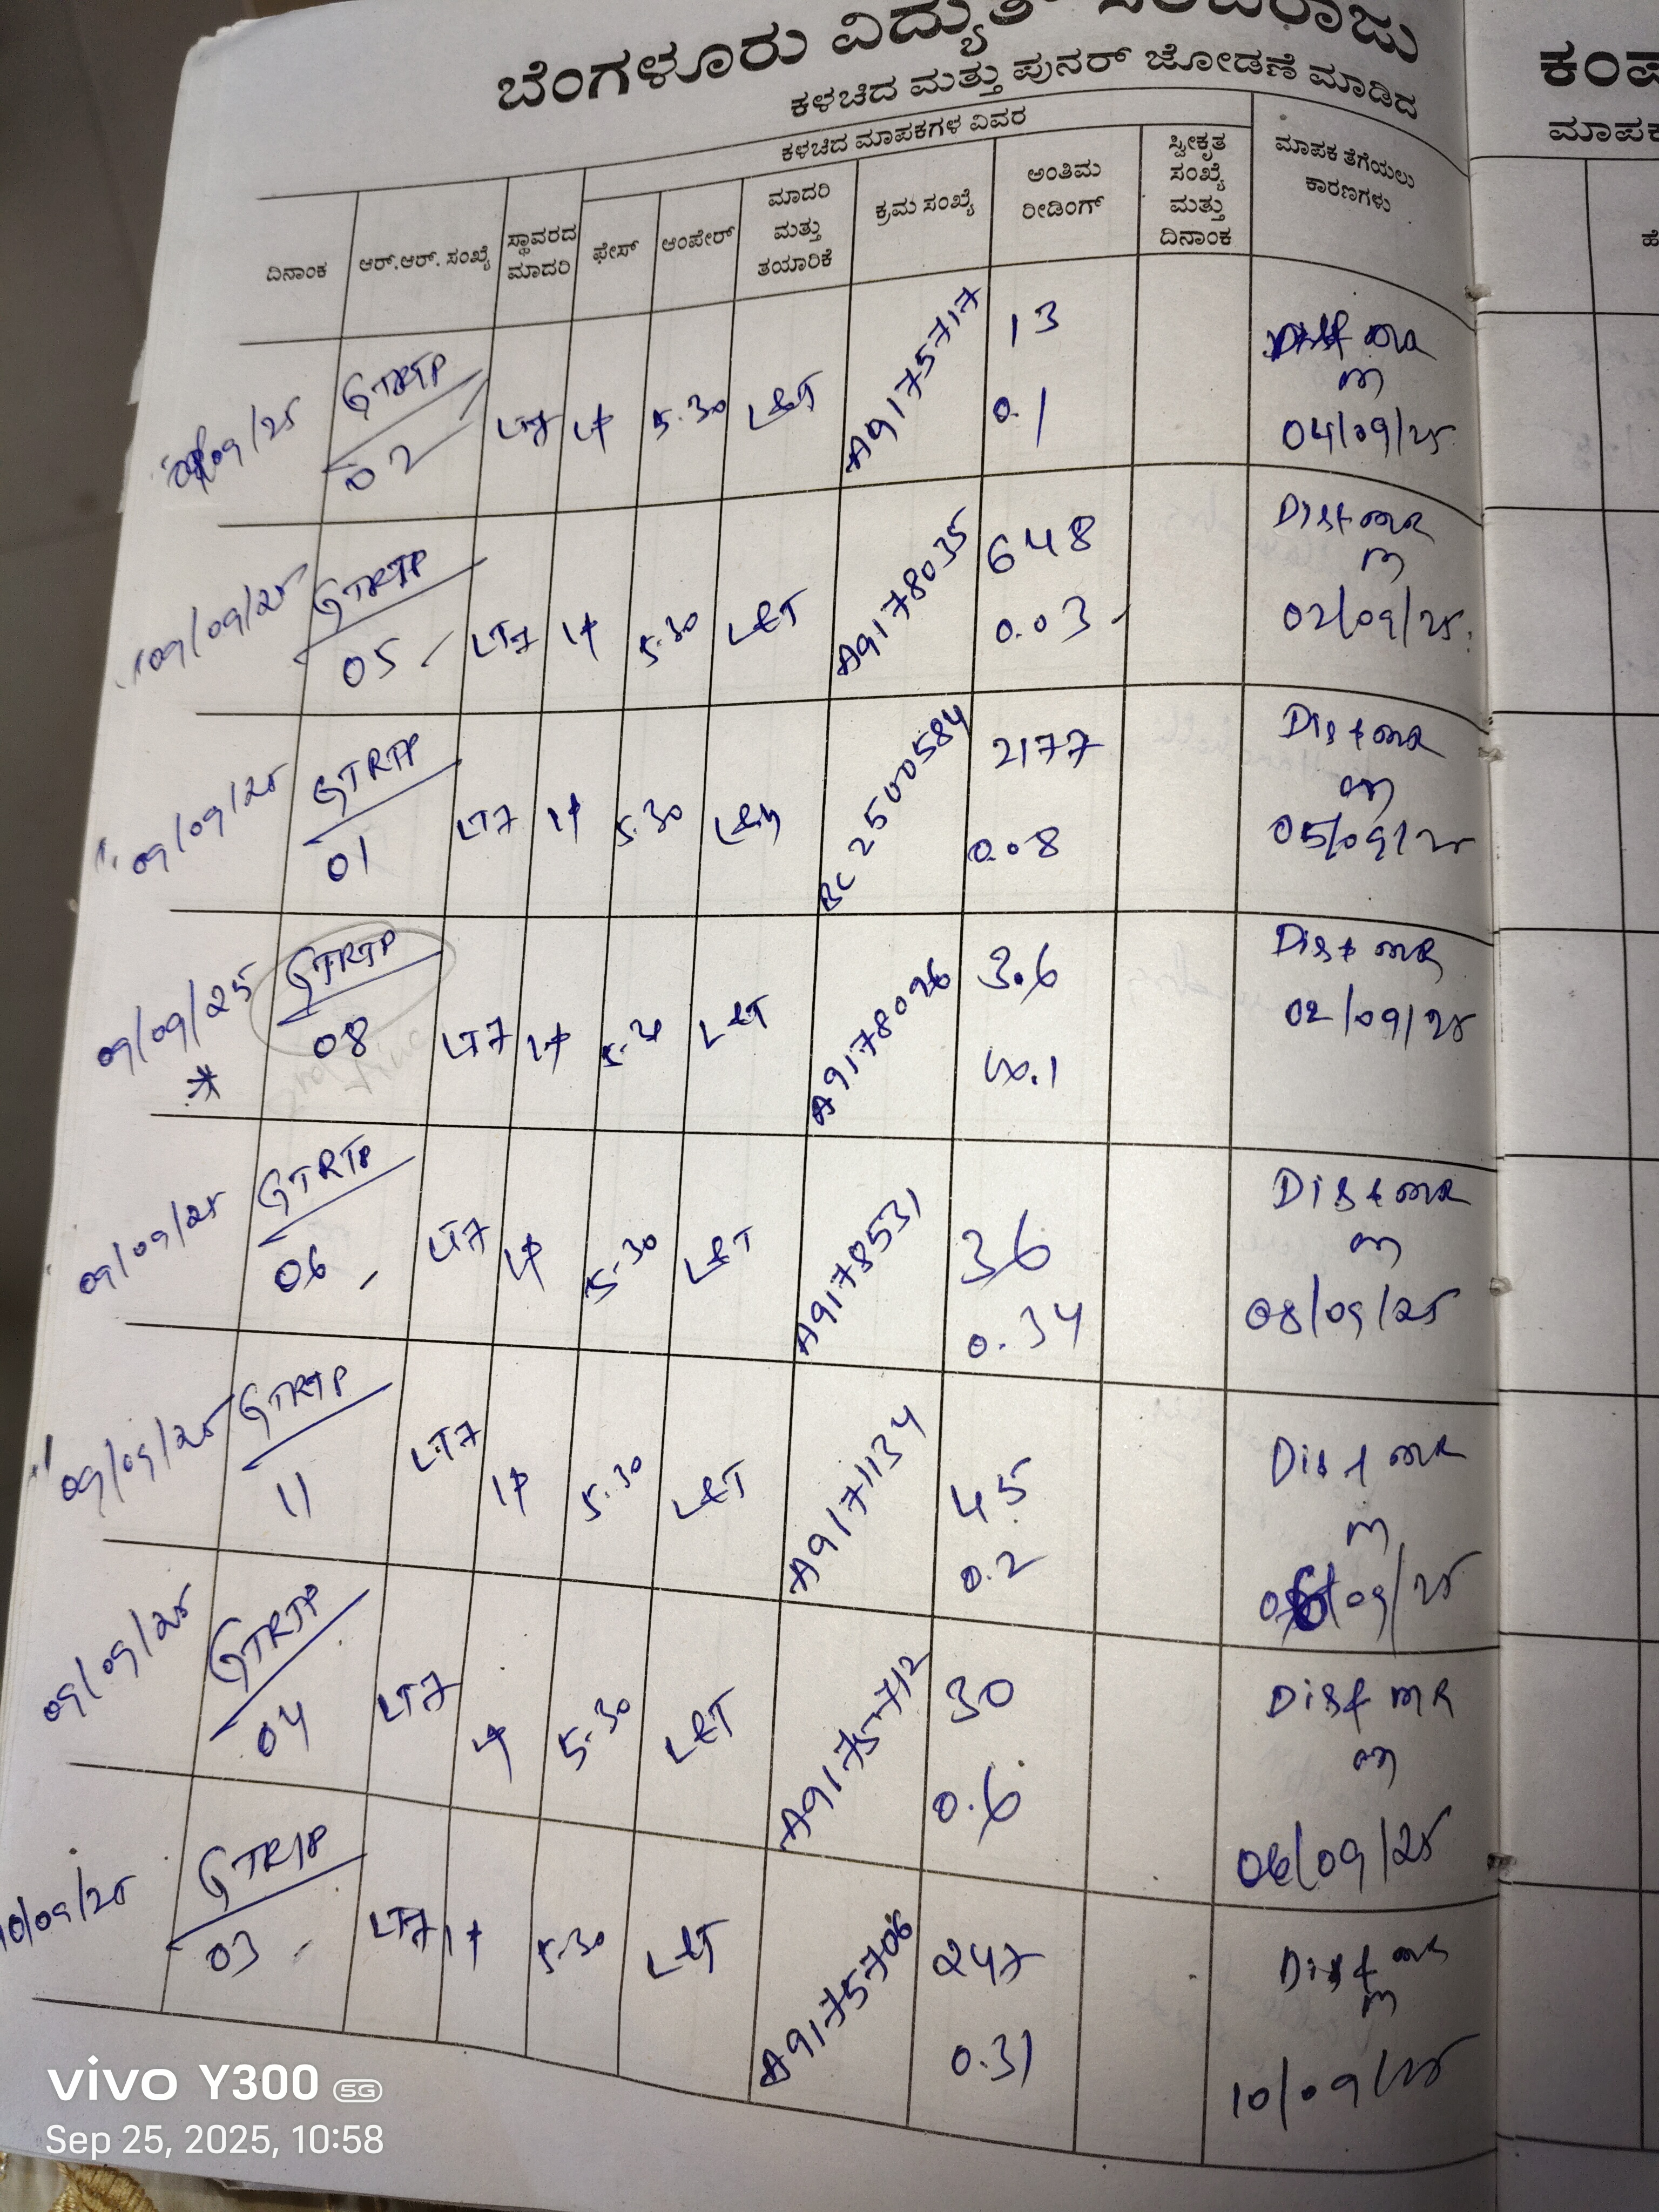 ಬೆಂಗಳೂರು ವಿದ್ಯುತ್ ಸರಬರಾಜು
ಕಂಪ
ಕಳಚಿದ ಮತ್ತು ಪುನರ್ ಜೋಡಣೆ ಮಾಡಿದ
ಮಾಪಕ
ಕಳಚಿದ ಮಾಪಕಗಳ ವಿವರ
ದಿನಾಂಕ
ಆರ್.ಆರ್. ಸಂಖ್ಯೆ
ಸ್ಥಾವರದ
ಮಾದರಿ
ಫೇಸ್
ಆಂಪೇರ್
ಮಾದರಿ
ಮತ್ತು
ತಯಾರಿಕೆ
ಕ್ರಮ ಸಂಖ್ಯೆ
ಅಂತಿಮ
ರೀಡಿಂಗ್
ಸ್ವೀಕೃತ
ಸಂಖ್ಯೆ
ಮತ್ತು
ದಿನಾಂಕ
ಮಾಪಕ ತೆಗೆಯಲು
ಕಾರಣಗಳು
ಹೆ
/09/25 GTRTP LT7 5-30 L&T A9175717 13
02 0.1 04/09/25
09/09/25 GTRTP LT7 5-30 L&T A9178035 648 Dist MR
05 0.03 02/09/25
09/09/25 GTRTP LT7 5-30 BC 2500584 2177 Dist MR
01 0.08 05/09/25
09/09/25 GTRTP LT7 5-30 L&T A9178026 3.6 Dist MR
* 08 0.1 02/09/25
09/09/25 GTRTP LT7 5-30 L&T A9178531 36 Dist MR
06 0.34 08/09/25
09/09/25 GTRTP LT7 5-30 L&T A9171134 45 Dist MR
11 0.2 /09/25
09/09/25 GTRTP LT7 5-30 L&T A9175712 30 Dist MR
04 0.6 06/09/25
10/09/25 GTRTP LT7 5-30 L&T A9175706 247 Dist MR
03 0.31 10/09/25
vivo Y300 5G
Sep 25, 2025, 10:58